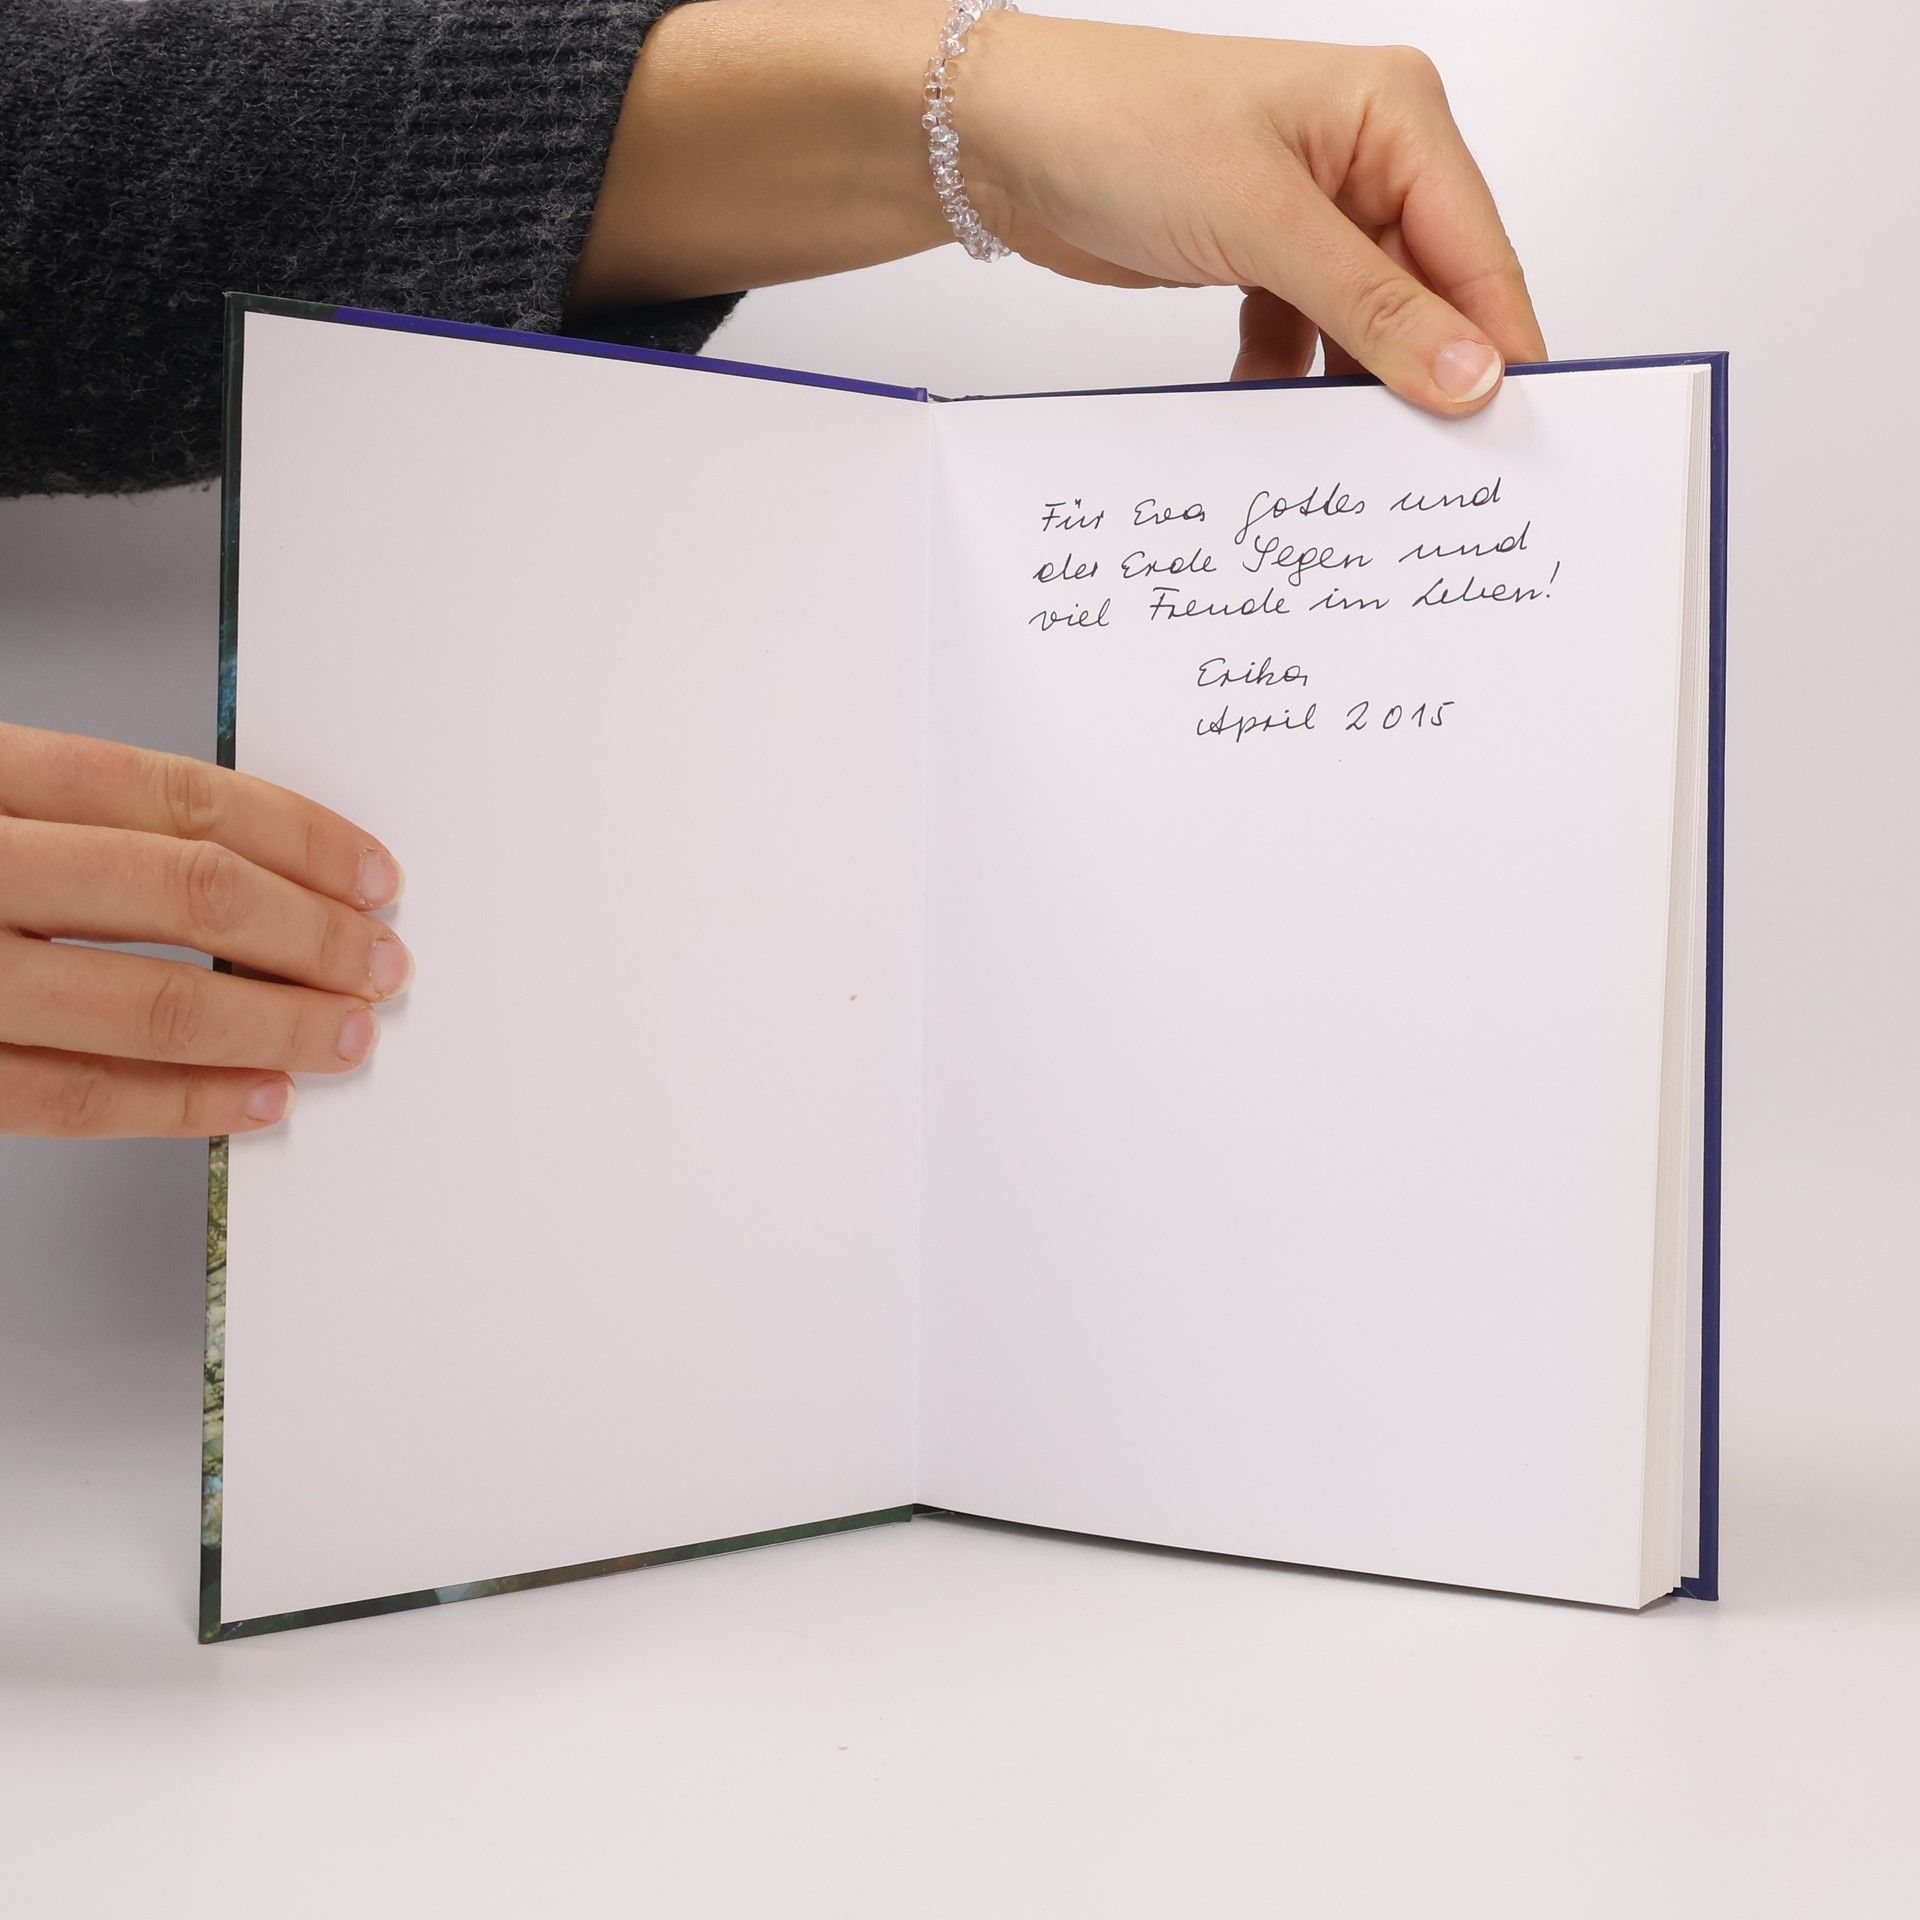 Für Eva Gottes und
der Erde Segen und
viel Freude im Leben!
Erika
April 2015